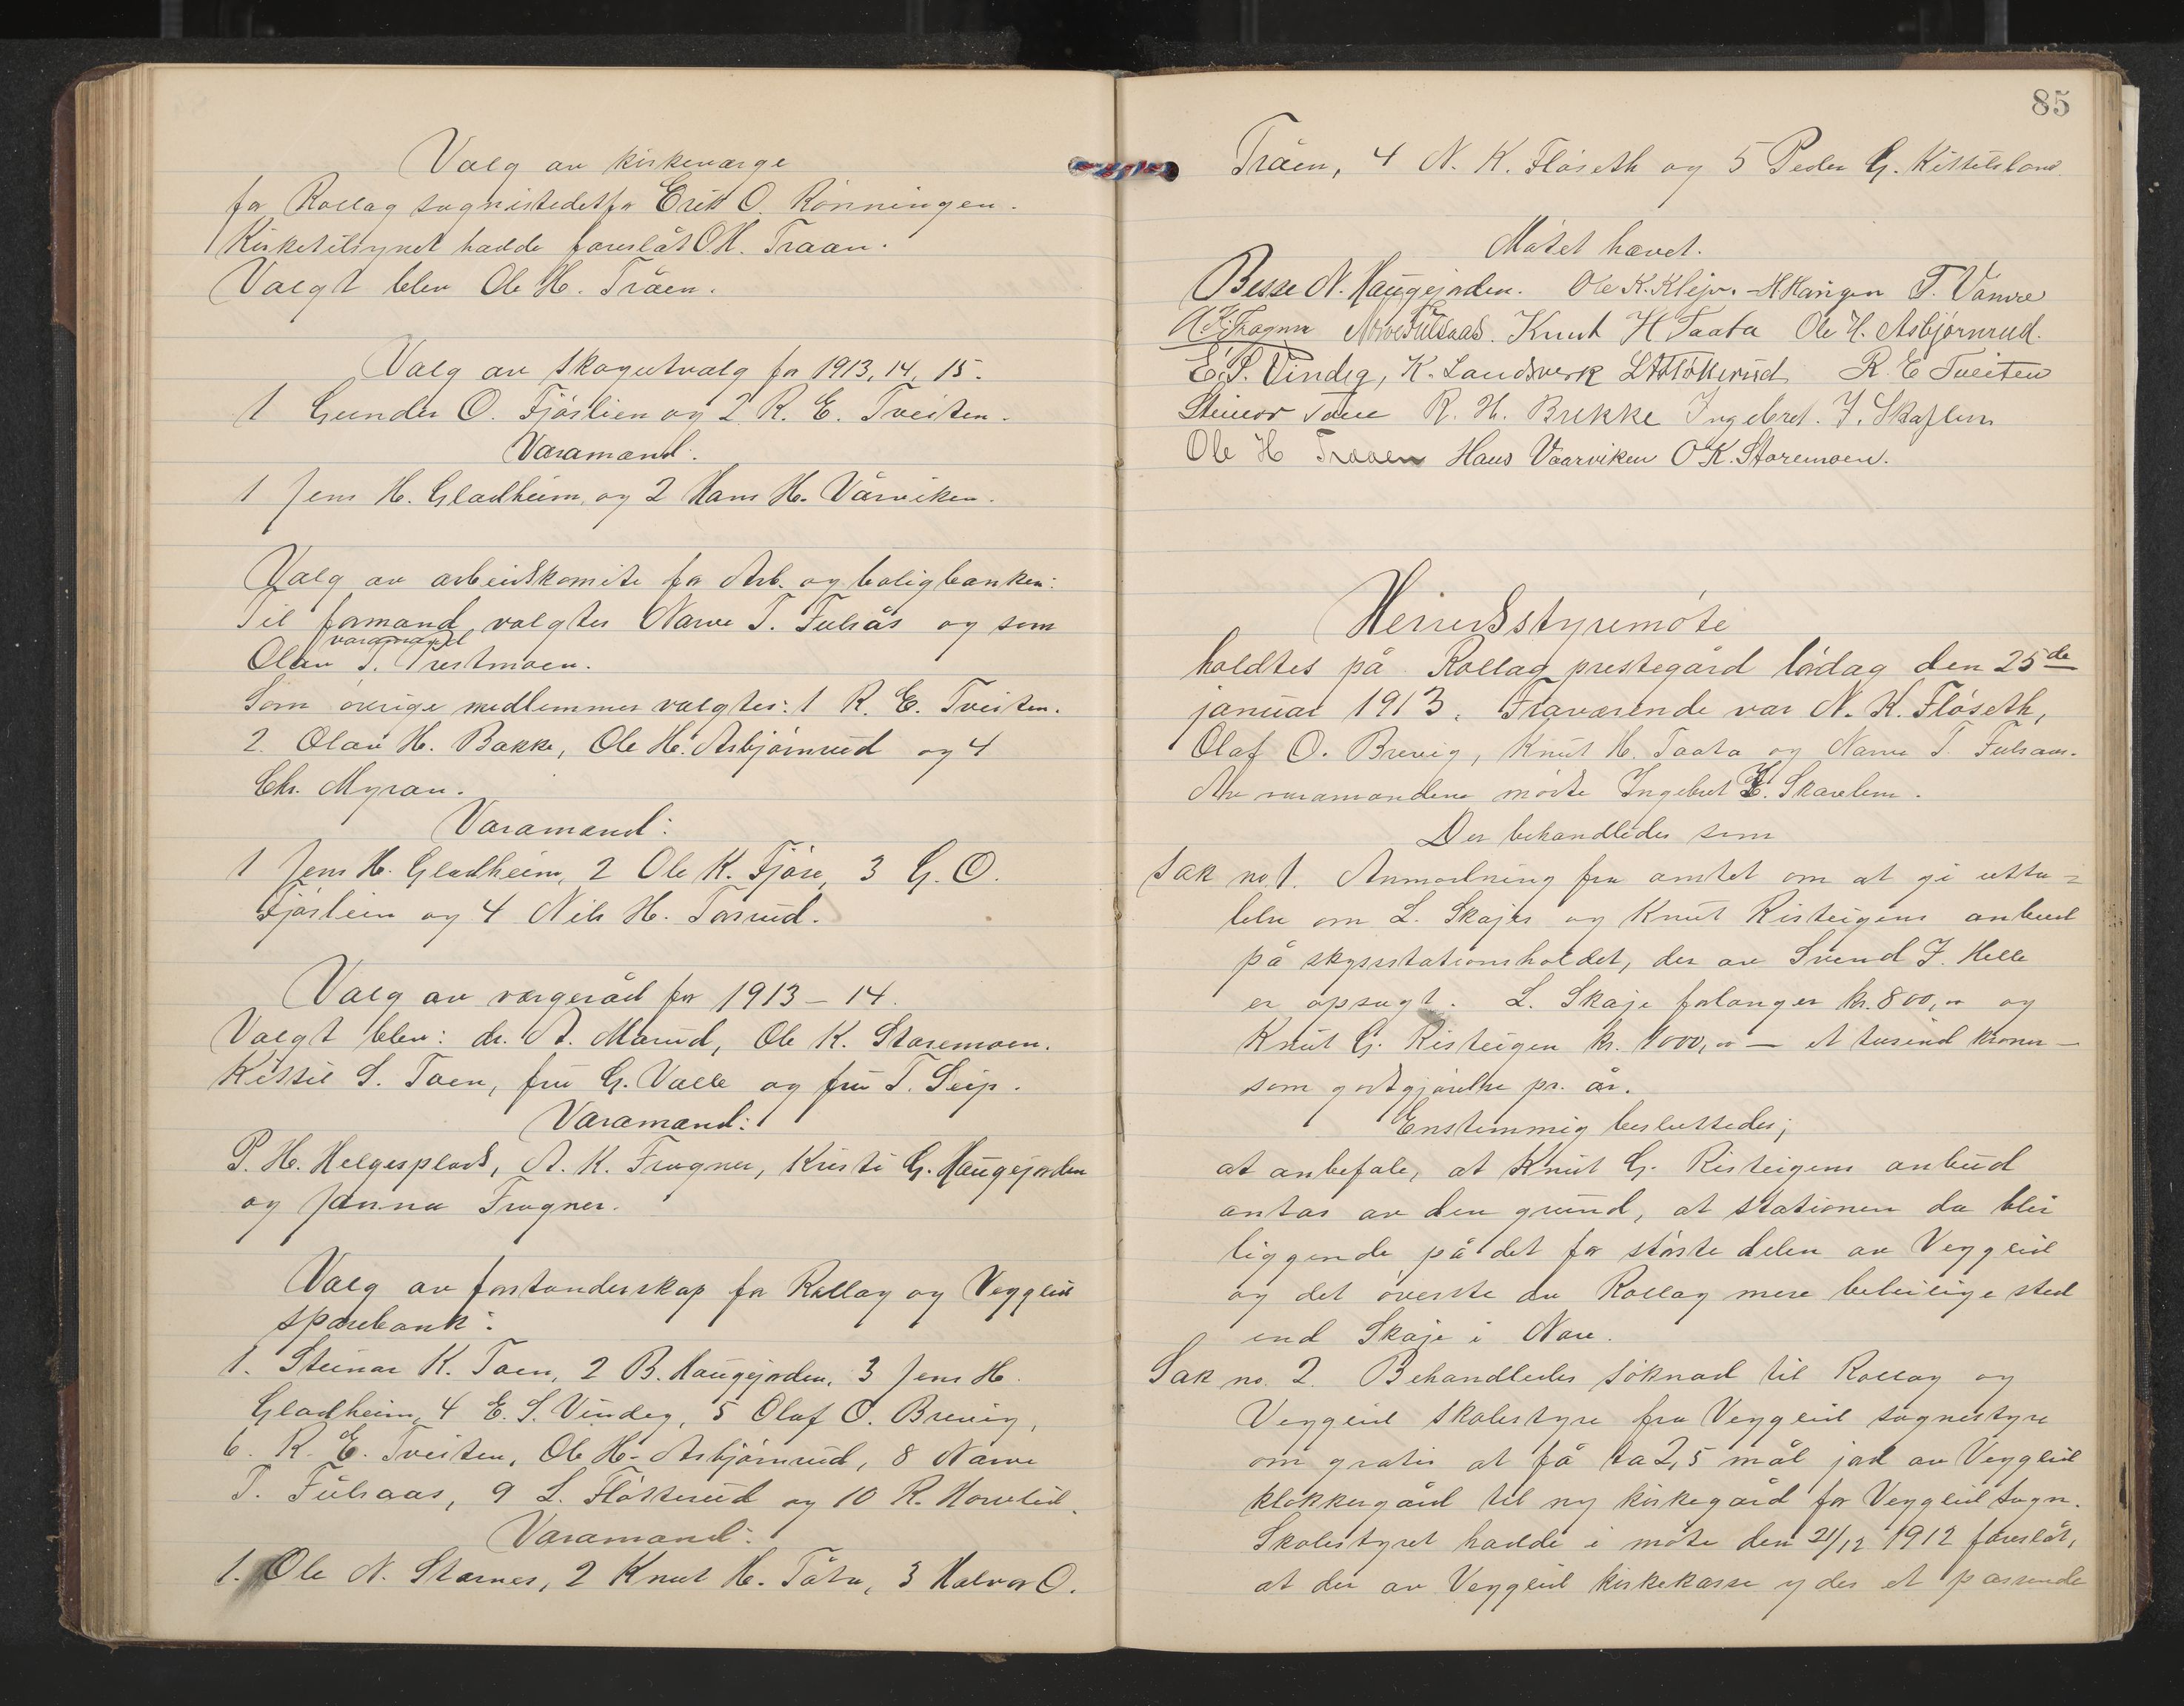 Valg av kirkeværge
for Rollag sogn istedetfor Erik O. Rønningen.
Kirketilsynet hadde foreslåt O. H. Traaen.
Valgt blev Ole H. Tråen.
Valg av skogutvalg for 1913, 14, 15.
1 Gunder O. Fjøslien og 2 R. E. Tveiten.
Varamænd:
1 Jens H. Gladheim, og 2 Hans H. Vårviken.
Valg av arbeidskomite for Arb. og boligbanken:
Til formand valgtes Narve T. Fulsås og som
varamand
Olav T. Prestmoen.
Som øvrige medlemmer valgtes: 1 R. E. Tveiten.
2. Olav H. Bakke, Ole H. Asbjørnrud og 4
Chr. Myran.
Varamænd:
1 Jens H. Gladheim, 2 Ole K. Fjøse, 3 G. O.
Fjøslien og 4 Nils H. Tosrud.
Valg av vergeråd for 1913-14.
Valgt blev: dr. A. Marud, Ole K. Staremoen.
Kittil S. Toen, fru G. Valle og fru T. Seip.
Varamænd:
P. H. Helgesplads, A. K. Frogner, Kristi G. Haugejorden
og Janna Frogner.
Valg av forstanderskap for Rollag og Veggli
sparebank:
1. Steinar K. Toen, 2 B. Haugejorden, 3 Jens H.
Gladheim, 4 E. S. Vindeg, 5 Olaf O. Brevig,
6. R. E. Tveiten, Ole H. Asbjørnrud, 8 Narve
T. Fulsaas, 9 L. Fløtterud og 10 R.
Varamænd:
1. Ole N. Starnes, 2 Knut H. Tåta, 3 Halvor O.
85
Tråen, 4 N. K. Fløseth og 5 Peder G. Kittilsland.
Møtet hævet.
Besse N. Haugejorden. Ole K. Kleiv. T. Vamre
A. K. Frogner Narve Fulsaas. Knut H Taata Ole H. Asbjørnrud.
E. S. Vindeg, K. Landsverk R. E Tveiten
Steinar Toen R. H. Brekke Ingebret. J. Skaflem
Ole H Traaen Hans Vaarviken O K. Staremoen.
Herredsstyremøte
holdtes på Rollag prestegård lørdag den 25de
januar 1913. Fraværende var N. K. Fløseth,
Olaf O. Brevig, Knut H. Taata og Narve T. Fulsaas.
Av varamændene møtte Ingebret J. Skavlem.
Der behandledes som
Sak no. 1. Anmodning fra amtet om at gi utta=
lelse om L. Skajes og Knut Risteigens anbud
på skysstationsholdet, der av Svend J. Helle
er opsagt. L. Skaje forlanger kr. 800,00 og
Knut G. Risteigen kr. 1000,00 — et tusind kroner —
som godtgjørelse pr. år.
Enstemmig besluttedes;
at anbefale, at Knut G. Risteigens anbud
antas av den grund, at stationen da blir
liggende på det for største delen av Veggli
og det øverste av Rollag mere beleilige sted
end Skaje i Nore.
Sak no. 2. Behandledes søknad til Rollag og
Veggli skolestyre fra Veggli sognestyre
om gratis at få ca 2,5 mål jord av Veggli
klokkergård til ny kirkegård for Veggli sogn.
Skolestyret hadde i møte den 21/12 1912 foreslåt,
at der av Veggli kirkekasse ydes et passende